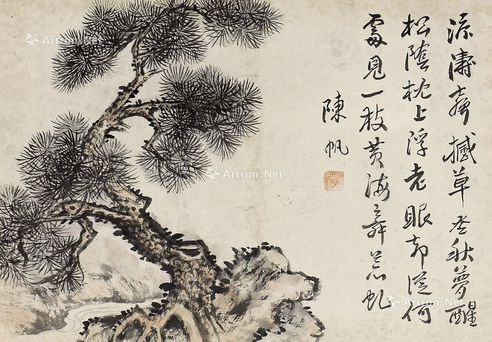 涼濤撼草秋夢醒
松陰枕上浮老眼却從何
處見一枝黄海舞虬
陳帆
Artron.Net
Artron.Net
Artron.Net
Artron.Net